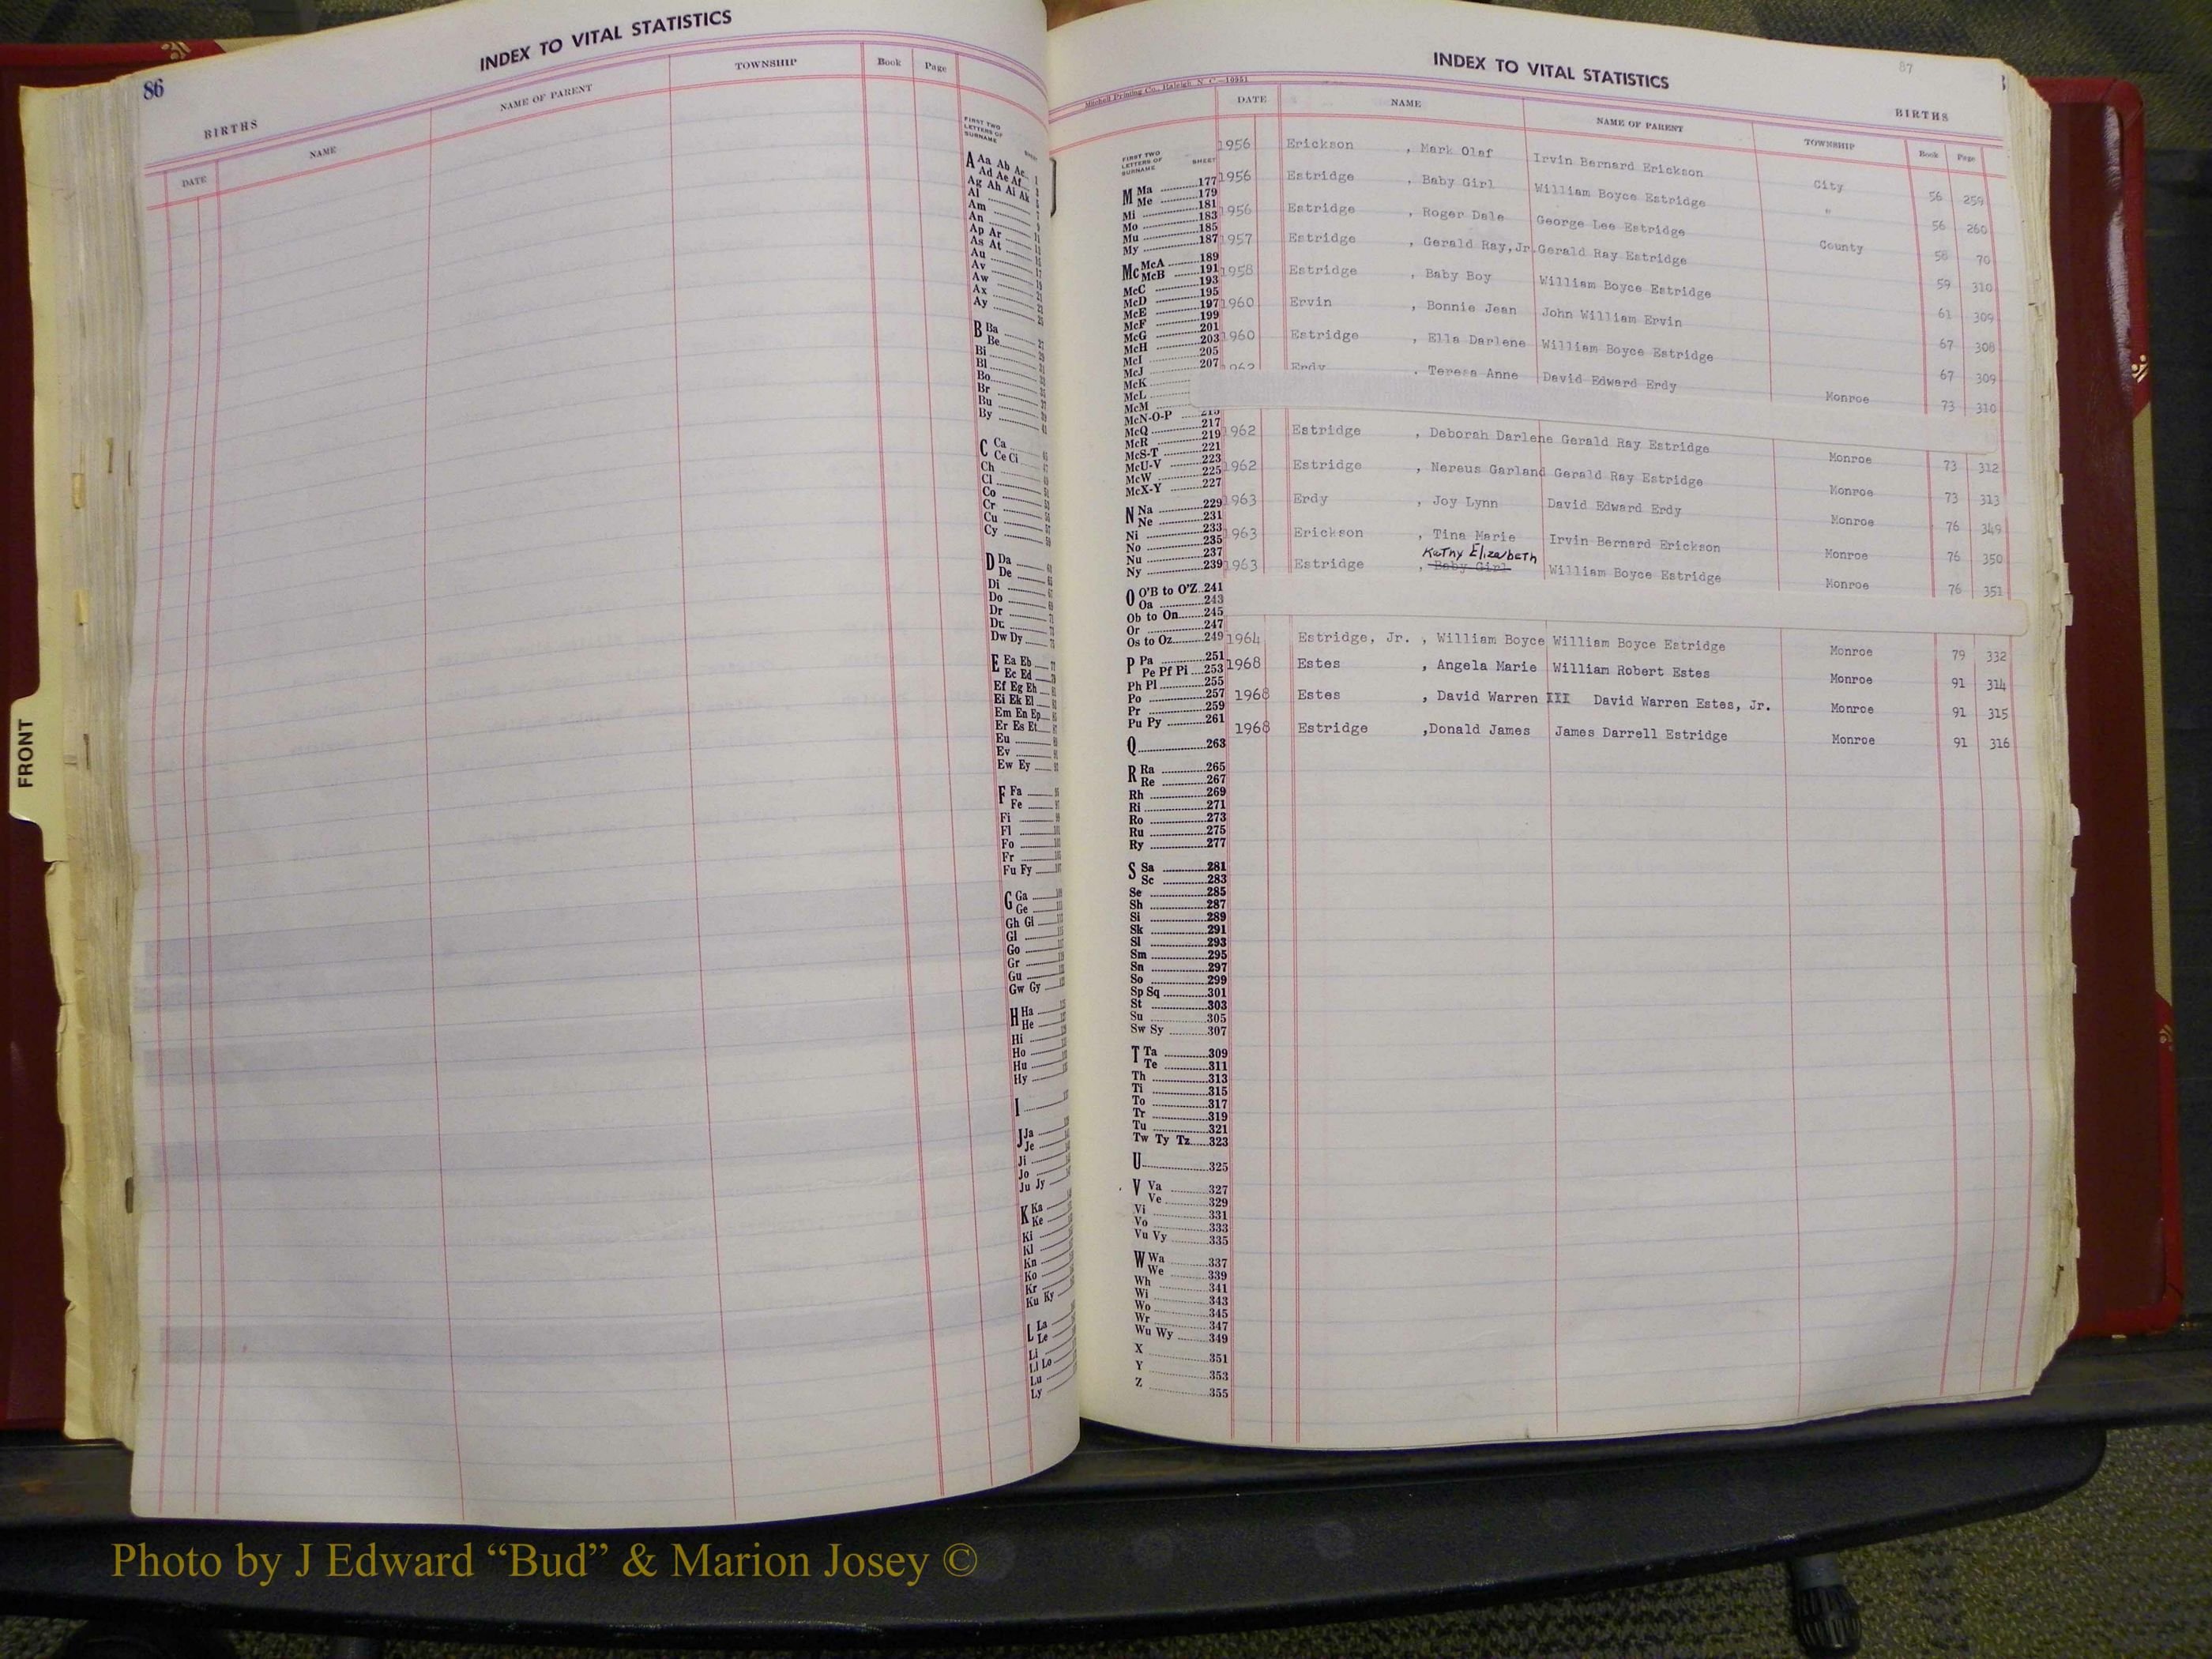 86
INDEX TO VITAL STATISTICS
BIRTHS
DATE NAME NAME OF PARENT TOWNSHIP Book Page
FIRST TWO
LETTERS OF
SURNAME
SHEET
A Aa Ab Ac
Ad Ae Af
Ag Ah Ai Ak
Al
Am
An
Ap Ar
As At
Au
Av
Aw
Ax
Ay
B Ba
Be
Bi
Bl
Bo
Br
Bu
By
C Ca
Ce Ci
Ch
Cl
Co
Cr
Cu
Cy
D Da
De
Di
Do
Dr
Du
Dw Dy
E Ea Eb
Ec Ed
Ef Eg Eh
Ei Ek El
Em En Ep
Er Es Et
Eu
Ev
Ew Ey
F Fa
Fe
Fi
Fl
Fo
Fr
Fu Fy
G Ga
Ge
Gh Gi
Gl
Go
Gr
Gu
Gw Gy
H Ha
He
Hi
Ho
Hu
Hy
I
J Ja
Je
Ji
Jo
Ju Jy
K Ka
Ke
Ki
Kl
Kn
Ko
Kr
Ku Ky
L La
Le
Li
Ll Lo
Lu
Ly
FRONT
87
INDEX TO VITAL STATISTICS
Mitchell Printing Co., Raleigh, N. C.—10951
BIRTHS
DATE NAME NAME OF PARENT TOWNSHIP Book Page
1956 Erickson , Mark Olaf Irvin Bernard Erickson City 56 259
1956 Estridge , Baby Girl William Boyce Estridge " 56 260
1956 Estridge , Roger Dale George Lee Estridge County 56 70
1957 Estridge , Gerald Ray, Jr. Gerald Ray Estridge 59 310
1958 Estridge , Baby Boy William Boyce Estridge 61 309
1960 Ervin , Bonnie Jean John William Ervin 67 308
1960 Estridge , Ella Darlene William Boyce Estridge 67 309
1962 Erdy , Teresa Anne David Edward Erdy Monroe 73 310
1962 Estridge , Deborah Darlene Gerald Ray Estridge Monroe 73 312
1962 Estridge , Nereus Garland Gerald Ray Estridge Monroe 73 313
1963 Erdy , Joy Lynn David Edward Erdy Monroe 76 349
1963 Erickson , Tina Marie Irvin Bernard Erickson Monroe 76 350
Kathy Elizabeth
1963 Estridge , Baby Girl William Boyce Estridge Monroe 76 351
1964 Estridge, Jr. , William Boyce William Boyce Estridge Monroe 79 332
1968 Estes , Angela Marie William Robert Estes Monroe 91 314
1968 Estes , David Warren III David Warren Estes, Jr. Monroe 91 315
1968 Estridge ,Donald James James Darrell Estridge Monroe 91 316
FIRST TWO
LETTERS OF
SURNAME
SHEET
M Ma 177
Me 179
Mi 181
Mo 183
Mu 185
My 187
Mc McA 189
McB 191
McC 193
McD 195
McE 197
McF 199
McG 201
McH 203
McI 205
McJ 207
McK
McL
McM
McN-O-P 215
McQ 217
McR 219
McS-T 221
McU-V 223
McW 225
McX-Y 227
N Na 229
Ne 231
Ni 233
No 235
Nu 237
Ny 239
O O'B to O'Z 241
Oa 243
Ob to On 245
Or 247
Os to Oz 249
P Pa 251
Pe Pf Pi 253
Ph Pl 255
Po 257
Pr 259
Pu Py 261
Q 263
R Ra 265
Re 267
Rh 269
Ri 271
Ro 273
Ru 275
Ry 277
S Sa 281
Sc 283
Se 285
Sh 287
Si 289
Sk 291
Sl 293
Sm 295
Sn 297
So 299
Sp Sq 301
St 303
Su 305
Sw Sy 307
T Ta 309
Te 311
Th 313
Ti 315
To 317
Tr 319
Tu 321
Tw Ty Tz 323
U 325
V Va 327
Ve 329
Vi 331
Vo 333
Vu Vy 335
W Wa 337
We 339
Wh 341
Wi 343
Wo 345
Wr 347
Wu Wy 349
X 351
Y 353
Z 355
Photo by J Edward “Bud” & Marion Josey ©